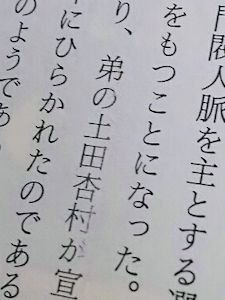 門閥人脈を主とする
をもつことになった。
り、弟の土田杏村が宣
にひらかれたのである
のようであ